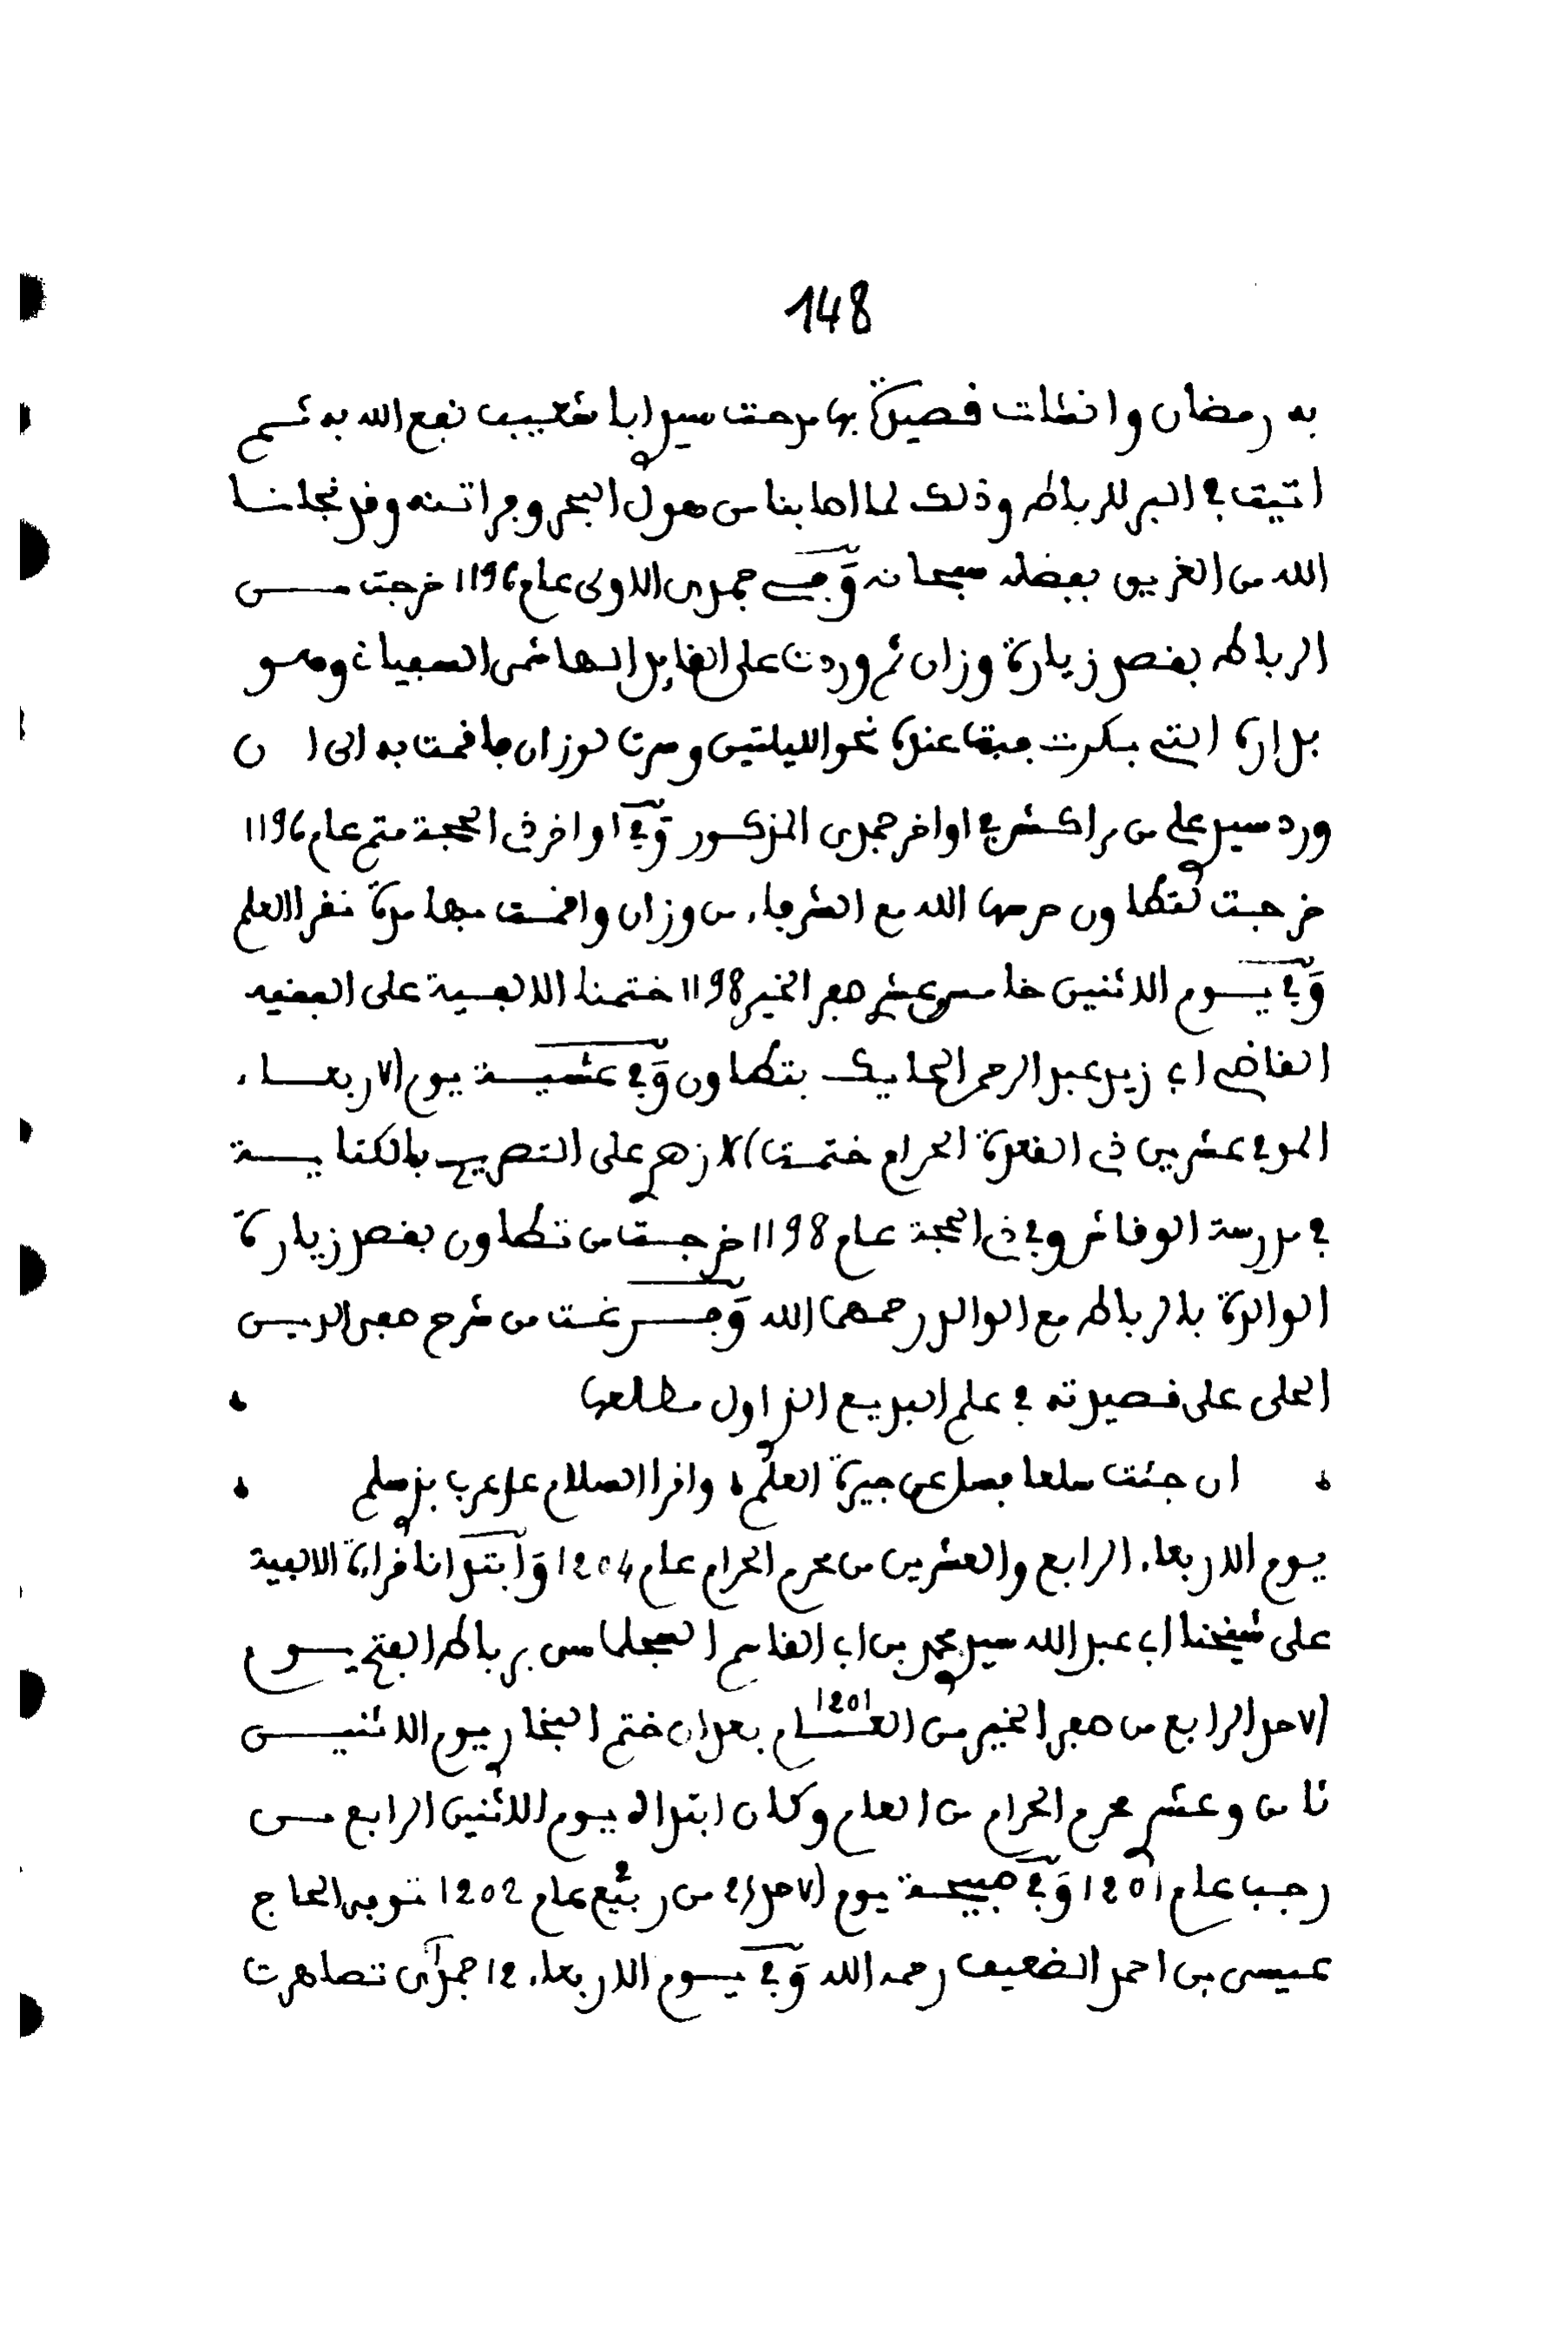 148
به رمضان وانشات قصيدة بها مدحت سيدي ابا شعيب نفع الله به ثم
اتيت في البر للرباط وذلك لما اصابنا من هول البحر وجراتنه وقد نجانا
الله من الغريق بفضله سبحانه وفي جمدى الاولى عام 1196 خرجت من
الرباط بقصد زيارة وزان ثم وردت على القايد الهاشمي السفياني وهو
بداره التي بسكرت فبتنا عنده نحو الليلتين وسرت لوزان فاقمت به الى ان
ورد سيدي علي من مراكش في اواخر جمدى المذكور وفي اواخر ذي الحجة متم عام 1196
خرجت لتطاون حرسها الله مع الشرفاء من وزان واقمت بها مدة نقرا العلم
وفي يوم الاثنين خامس عشر صفر الخير 1198 ختمنا الالفية على الفقيه
القاضي ابي زيد عبد الرحمن الحايك بتطاون وفي عشية يوم الاربعاء
الموفي عشرين ذي القعدة الحرام ختمت الازهر على التصريح بالكتابة
في مدرسة الوقاش وفي ذي الحجة عام 1198 خرجت من تطاون بقصد زيارة
الوالدة بالرباط مع الوالد رحمهما الله وفرغت من شرح صفي الدين
الحلي على قصيدته في علم البديع الذي اول مطلعها
ان جئت سلعا فسل عن جيرة العلم واقرا السلام على عرب بذي سلم
يوم الاربعاء الرابع والعشرين من محرم الحرام عام 1204 وابتدانا قراءة الالفية
على شيخنا ابي عبد الله سيدي محمد بن ابي القاسم السجلماسي برباط الفتح يوم
الاحد الرابع من صفر الخير من العام 1201 بعد ان ختم البخاري يوم الاثنين
ثامن وعشر محرم الحرام من العام وكان ابتداه يوم الاثنين الرابع من
رجب عام 1201 وفي صبيحة يوم الاحد 21 من ربيع عام 1202 توفي الحاج
عيسى بن احمد الضعيف رحمه الله وفي يوم الاربعاء 12 جمدى تصاهرت